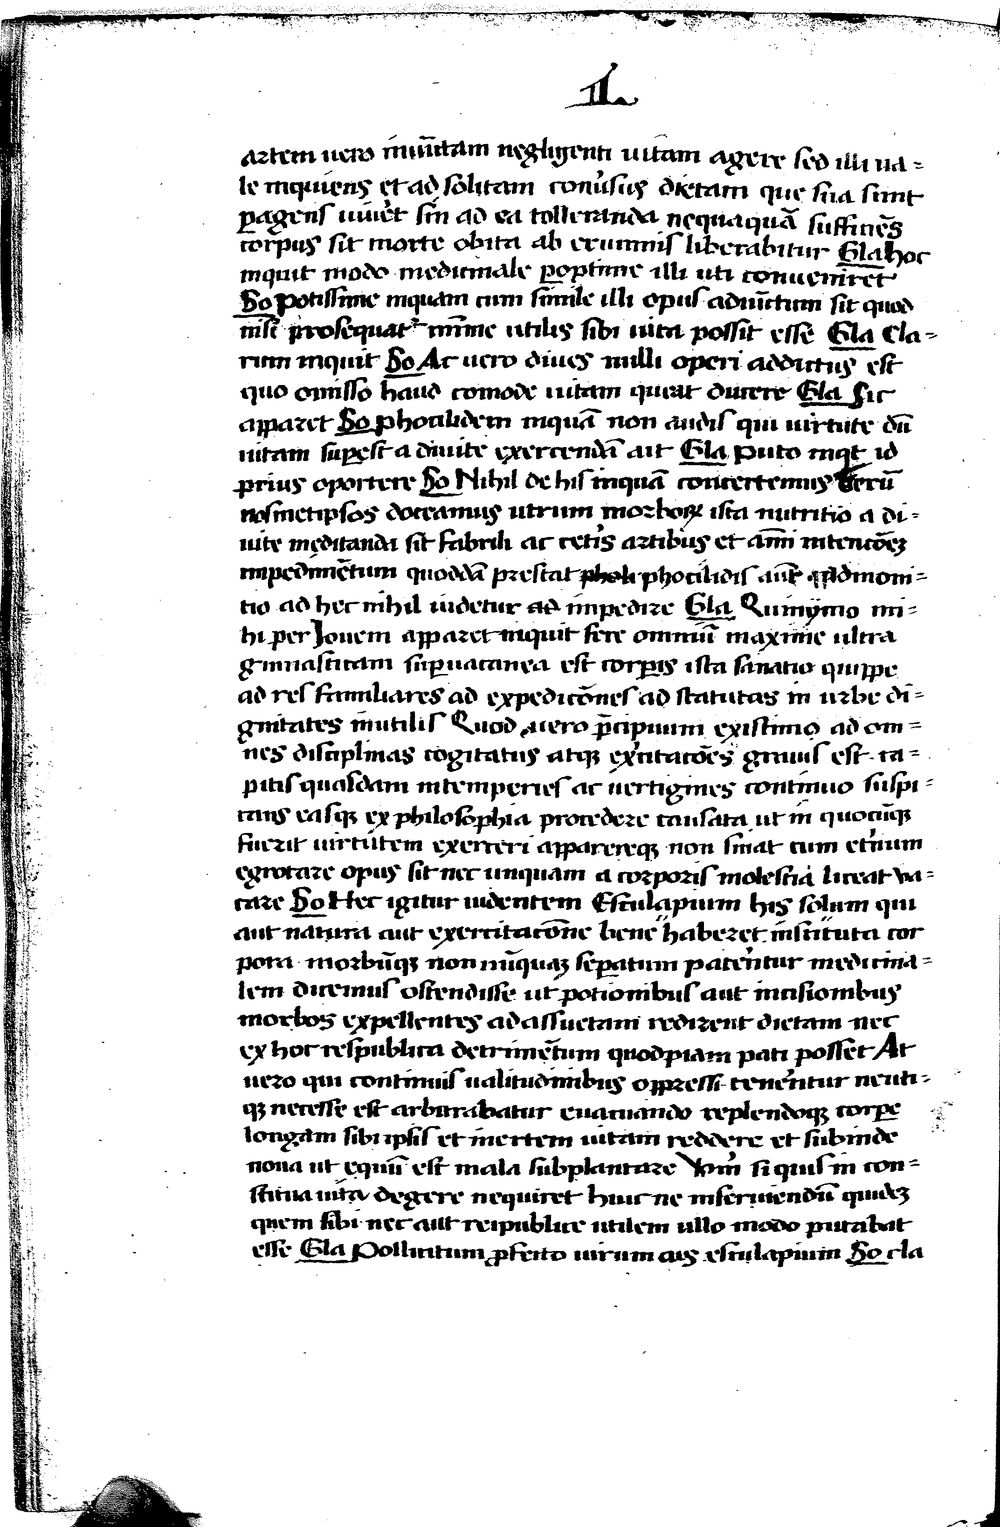 II.
artem uero inuitam negligenti uitam agere sed illi ua=
le inquiens et ad solitam conuersus dietam que sua sunt
peragens uiuet sin ad ea tolleranda nequaquā sufficiēs
corpus sit morte obita ab erumnis liberabitur Gla hoc
inquit modo medicinale peroptime illi uti conueniret
So potissime inquam cum simile illi opus adiūctum sit quod
nisi prosequatur minime utilis sibi uita possit esse Gla Cla=
rum inquit So At uero diues nulli operi addictus est
quo omisso haud comode uitam queat ducere Gla Sic
apparet So phocilidem inquā non audis qui uirtute dū
uitam superest a diuite exercendā ait Gla Puto inqt id
prius oportere So Nihil de his inquā concertemus Verū
nosmetipsos doceamus utrum morborum ista nutritio a di=
uite meditanda sit fabrili ac ceteris artibus et animi intencōez
impedimētum quoddā prestat phocilidis aut admoni=
tio ad hec nihil uidetur ad impedire Gla Quinymo mi=
hi per Jouem apparet inquit fere omniū maxime ultra
gimnasticam superuacanea est corporis ista sanatio quippe
ad res familiares ad expedicōnes ad statutas in urbe di=
gnitates inutilis Quod uero precipuum existimo ad om=
nes disciplinas cogitatus atque exercitacōes grauis est ca=
pitis quasdam intemperies ac uertigines continuo suspi=
cans easque ex philosophia procedere causata ut in quocūque
fuerit uirtutem exerceri apparereque non sinat cum eternum
egrotare opus sit nec unquam a corporis molestia liceat va=
care So Hec igitur uidentem Esculapium his solum qui
aut natura aut exercitacōne bene haberet instituta cor
pora morbūque non nūquaz separatum paterentur medicina=
lem dicemus ostendisse ut potionibus aut incisionibus
morbos expellentes ad assuetam redirent dietam nec
ex hoc respublica detrimētum quodpiam pati posset At
uero qui continuis ualitudinibus oppressi tenerentur neuti=
que necesse est arbitrabatur euacuando replendoque corpore
longam sibi ipsis et inertem uitam reddere et subinde
noua ut equū est mala subplantare Verum si quis in con=
stituta uita degere nequiret huic ne inseruiendū quidez
quem sibi nec aut reipublice utilem ullo modo putabat
esse Gla Polliticum profecto uirum ais esculapium So cla